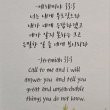 예레미야 33:3
너는 내게 부르짖으라
내가 네게 응답하겠고
네가 알지 못하는 크고
은밀한 일을 네게 보이리라
Jeremiah 33:3
Call to me and I will
answer you and tell you
great and unsearchable
things you do not know.